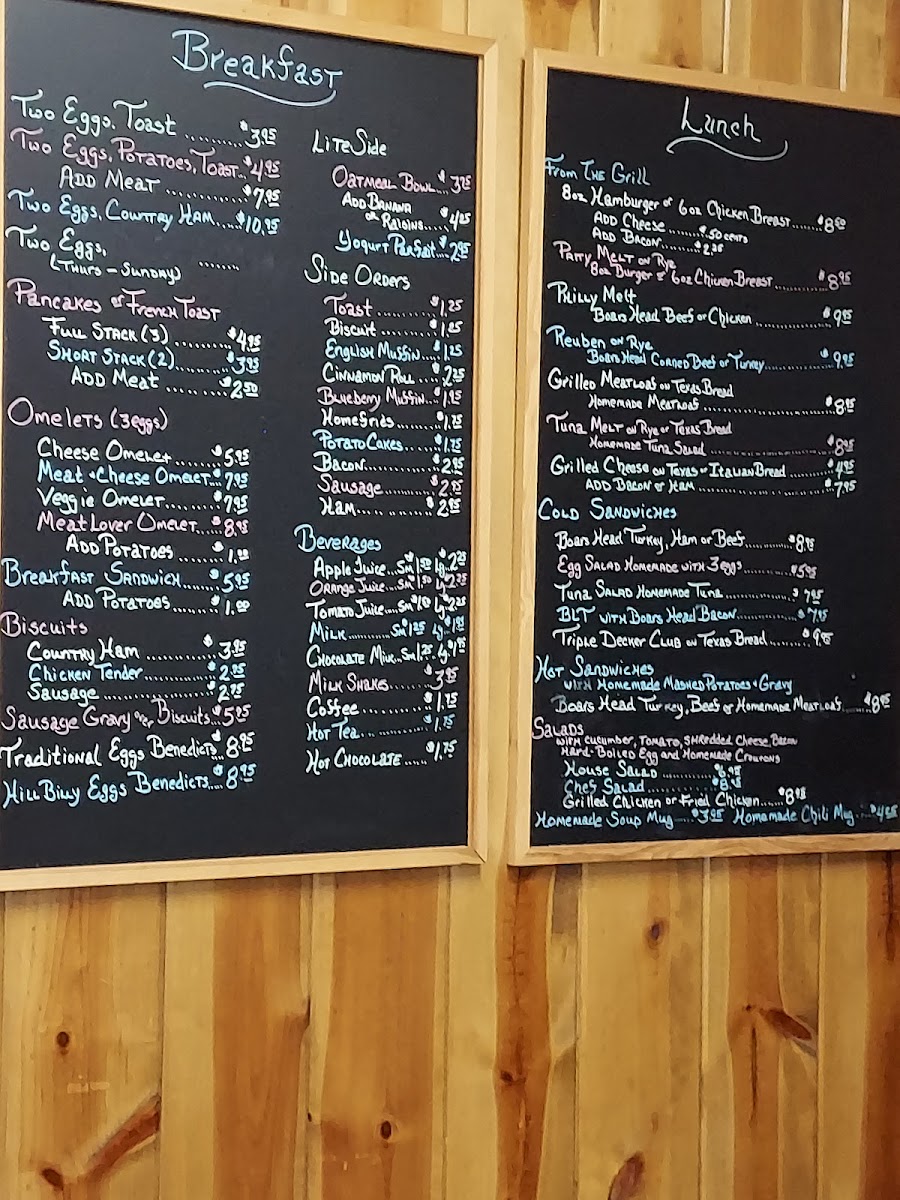 Breakfast
Two Eggs, Toast ....... $3.95
Two Eggs, Potatoes, Toast... $4.95
Add Meat ......... $7.95
Two Eggs, Country Ham..... $10.95
Two Eggs, .......
(Thurs - Sunday)
Pancakes or French Toast
Full Stack (3) ........ $4.95
Short Stack (2) ........ $3.95
Add Meat ....... $2.50
Omelets (3 eggs)
Cheese Omelet....... $5.95
Meat & Cheese Omelet... $7.95
Veggie Omelet....... $7.95
Meat Lover Omelet... $8.95
Add Potatoes ..... $1.00
Breakfast Sandwich..... $5.95
Add Potatoes...... $1.00
Biscuits
Country Ham .......... $3.95
Chicken Tender .......... $2.95
Sausage ............... $2.75
Sausage Gravy over Biscuits... $5.25
Traditional Eggs Benedicts.. $8.95
Hill Billy Eggs Benedicts.... $8.95
Lite Side
Oatmeal Bowl.... $3.25
Add Banana
or Raisins..... $4.25
Yogurt Parfait... $2.95
Side Orders
Toast ........... $1.25
Biscuit .......... $1.25
English Muffin.... $1.25
Cinnamon Roll .... $2.25
Blueberry Muffin... $1.95
Homefries........ $1.75
Potato Cakes...... $1.75
Bacon............ $2.95
Sausage ......... $2.95
Ham............ $2.95
Beverages
Apple Juice.. Sm $1.50 Lg $2.25
Orange Juice... Sm $1.50 Lg $2.25
Tomato Juice.... Sm $1.50 Lg $2.25
Milk.......... Sm $1.25 Lg $1.95
Chocolate Milk.. Sm $1.25 Lg $1.95
Milk Shakes...... $3.95
Coffee............ $1.75
Hot Tea........... $1.75
Hot Chocolate ..... $1.75
Lunch
From The Grill
8oz Hamburger or 6oz Chicken Breast...... $8.50
Add Cheese ........ $.50 cents
Add Bacon........ $2.25
Patty Melt on Rye
8oz Burger or 6oz Chicken Breast........... $8.95
Philly Melt
Boars Head Beef or Chicken ............... $9.95
Reuben on Rye
Boars Head Corned Beef or Turkey............ $9.95
Grilled Meatloaf on Texas Bread
Homemade Meatloaf ...................... $8.95
Tuna Melt on Rye or Texas Bread
Homemade Tuna Salad ................... $8.95
Grilled Cheese on Texas or Italian Bread .......... $4.95
Add Bacon or Ham ........................ $7.95
Cold Sandwiches
Boars Head Turkey, Ham or Beef........... $8.75
Egg Salad Homemade with 3 eggs.......... $5.95
Tuna Salad Homemade Tuna .............. $7.95
BLT with Boars Head Bacon............. $7.95
Triple Decker Club on Texas Bread........ $9.95
Hot Sandwiches
with Homemade Mashed Potatoes & Gravy
Boars Head Turkey, Beef or Homemade Meatloaf...... $8.95
Salads
with Cucumber, Tomato, Shredded Cheese, Bacon
Hard-Boiled Egg and Homemade Croutons
House Salad ............ $6.95
Chef Salad............. $8.95
Grilled Chicken or Fried Chicken...... $8.95
Homemade Soup Mug..... $3.95 Homemade Chili Mug.... $4.25